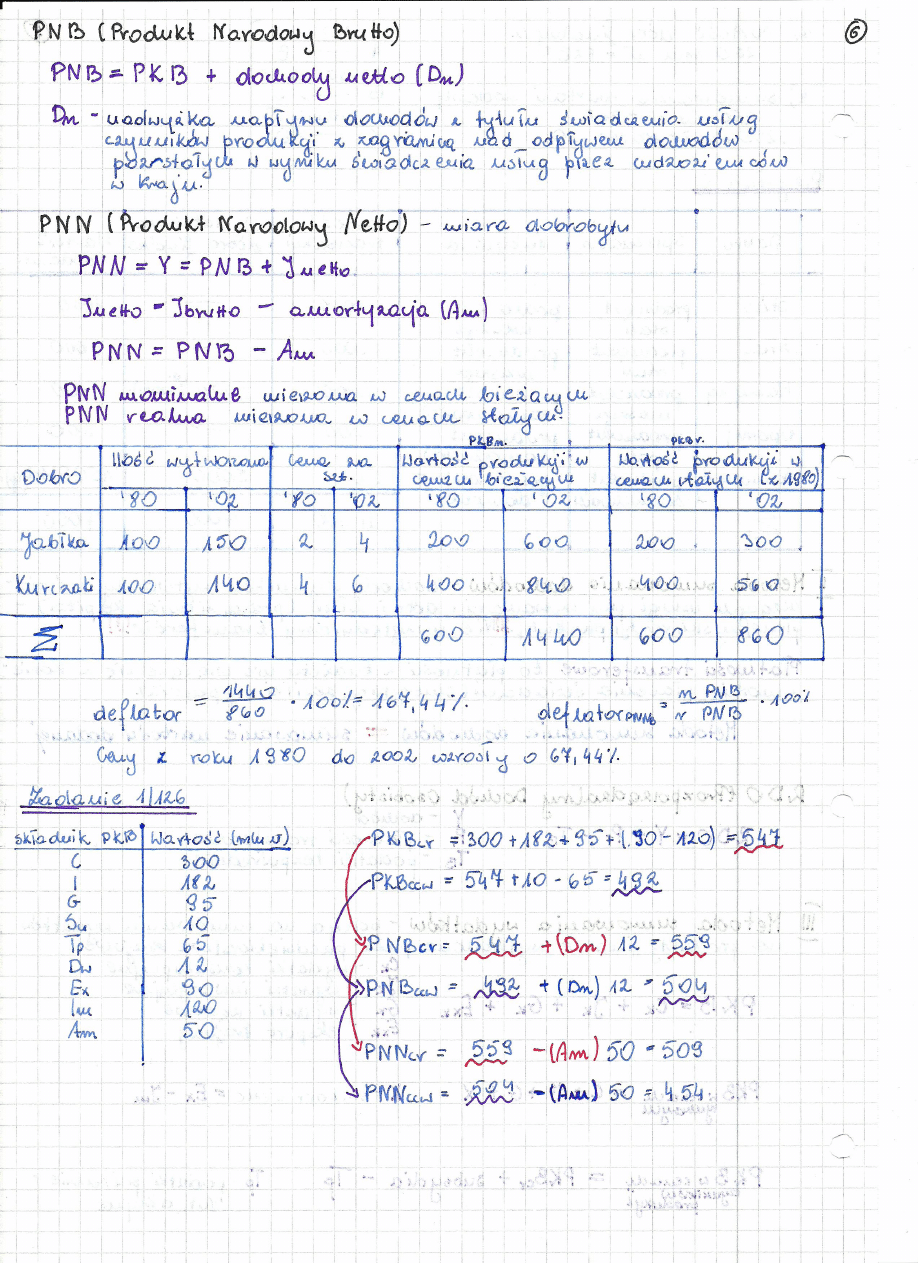 PNB (Produkt Narodowy Brutto)
6
PNB = PKB + dochody netto (Dn)
Dn - nadwyżka napływu dochodów z tytułu świadczenia usług
czynników produkcji z zagranicą nad odpływem dochodów
pozostałych w wyniku świadczenia usług przez cudzoziemców
w kraju.
PNN (Produkt Narodowy Netto) - miara dobrobytu
PNN = Y = PNB + Jnetto
Jnetto = Jbrutto - amortyzacja (Am)
PNN = PNB - Am
PNN nominalne mierzona w cenach bieżących
PNN realna mierzona w cenach stałych.
PKBn. PKBr.
Dobro Ilość wytworzona Cena za szt. Wartość produkcji w cenach bieżących Wartość produkcji w cenach stałych (z 1980)
'80 '02 '80 '02 '80 '02 '80 '02
Jabłka 100 150 2 4 200 600 200 300
Kurczaki 100 140 4 6 400 840 400 560
Σ 600 1440 600 860
deflator = 1440/860 · 100% = 167,44%. deflator PNB = n PNB/r PNB · 100%
Ceny z roku 1980 do 2002 wzrosły o 67,44%.
Zadanie 1/126
składnik PKB Wartość (mln zł)
C 300
I 182
G 95
Su 10
Tp 65
Dn 12
Ex 90
Im 120
Am 50
PKBcr = 300 + 182 + 95 + (90 - 120) = 547
PKBccw = 547 + 10 - 65 = 492
PNBcr = 547 + (Dn) 12 = 559
PNBccw = 492 + (Dn) 12 = 504
PNNcr = 559 - (Am) 50 = 509
PNNccw = 504 - (Am) 50 = 454